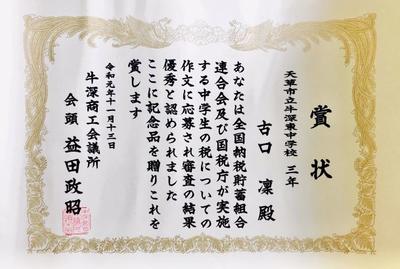 賞状
天草市立牛深東中学校 三年
古口 凜 殿
あなたは全国納税貯蓄組合
連合会及び国税庁が実施
する中学生の税についての
作文に応募され審査の結果
優秀と認められました
ここに記念品を贈りこれを
賞します
令和元年十一月十三日
牛深商工会議所
会頭 益田政昭